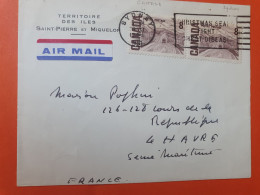 TERRITOIRE
DES ILES
SAINT-PIERRE ET MIQUELON
AIR MAIL
CANADA
CANADA
CHRISTMAS SEALS
FIGHT
Maison Poplin
126-128 cours de la
République
LE HAVRE
Seine Maritime
FRANCE